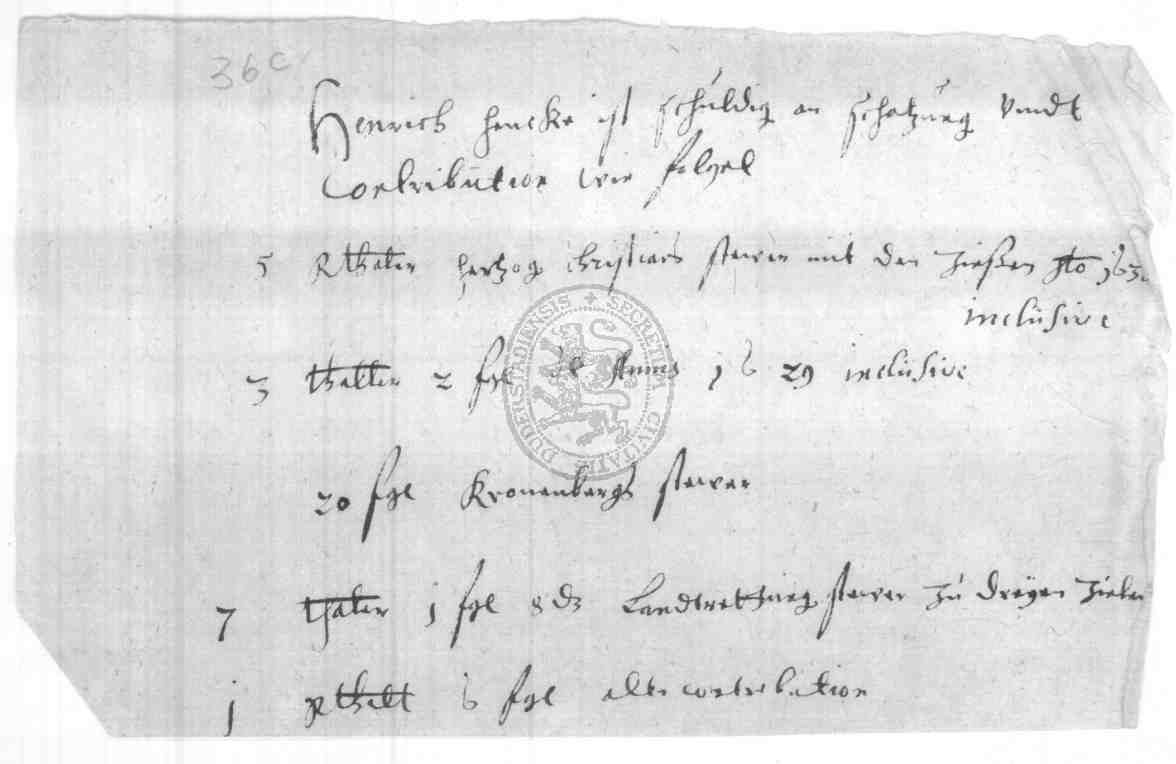 36c
Henrich Hencke ist schuldig an schatzung vndt
Contribution wie folget
5 Rthaler Hertzog Christians stewer mit den Zießen
inclusive
3 thaller 2 fgl 1629 inclusive
20 fgl Kronenbergs stewer
7 thaler 1 fgl 8 dz Landtrettung stewer zu dreyen Zielen
1 Rthall 6 fgl alte contribution
SECRETUM CIVITATIS DUDERSTADIENSIS